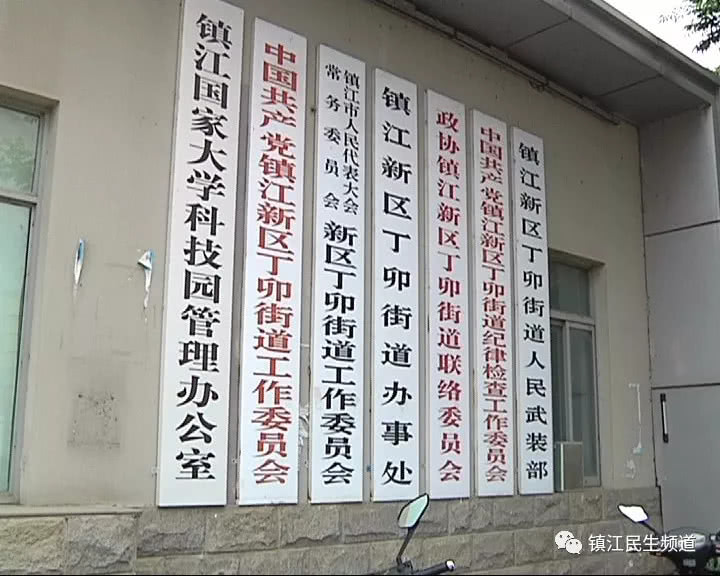 镇江国家大学科技园管理办公室
中国共产党镇江新区丁卯街道工作委员会
镇江市人民代表大会
常务委员会
新区丁卯街道工作委员会
镇江新区丁卯街道办事处
政协镇江新区丁卯街道联络委员会
中国共产党镇江新区丁卯街道纪律检查工作委员会
镇江新区丁卯街道人民武装部
镇江民生频道